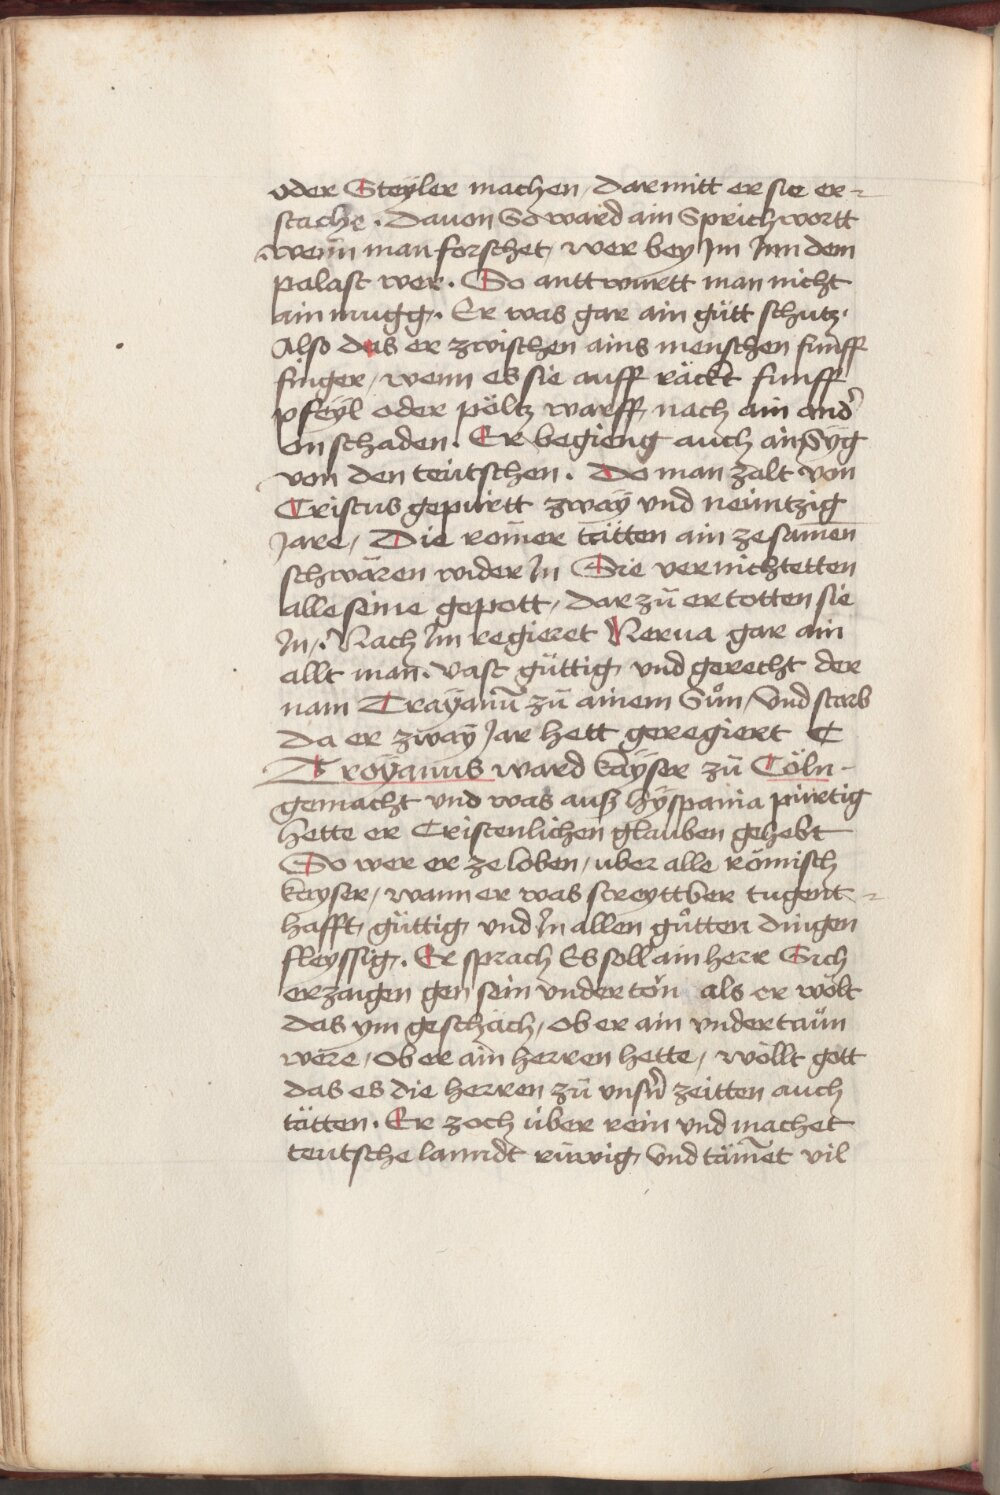 oder Steyler machen / darmitt er sie er=
stache . Dauon So ward ain Sprichwortt
wenn man forschet / wer bey Jm Jnn dem
palast wer . So anttwurtt man nicht
ain mugg . Er was gar ain gütt schutz .
Also das er zwischen ains menschen fünff
finger / wenn es sie auff räckt funff
pfeyl oder pöltz warff / nach ain and'
on schaden . Er begieng auch ain Syg
von den teutschen . Do man zalt von
Cristus gepurtt zway und neüntzig
Jare / Die romer tätten ain zesamen
schwären wider Jn Sie vernichtetten
alle seine gepott / dar zü ertotten sie
Jn / . Nach Jm regieret Nerua gar ain
allt man . vast güttig / und gerecht der
nam Trayanū zü ainem Sůn / Und starb
da er zway Jar hett geregiert C
Troyanus ward kayser zü Cöln -
gemacht und was auß hyspania pürtig
hette er Cristenlichen glauben gehebt
So wer er ze loben / uber alle römisch
kayser / wann er was streyttber tugent=
hafft / güttig / und Jn allen gůtten dingen
fleyssig . Er sprach Es soll ain herr Sich
erzaigen gen sein vndertön als er wölt
das ym geschäch / ob er ain vndertaün
were / ob er ain herren hette / wöllt gott
das es die herren zü vnsn' zeitten auch
tätten . Er zoch über rein vnd machet
teutsche lanndt rüwig / Und tämet vil